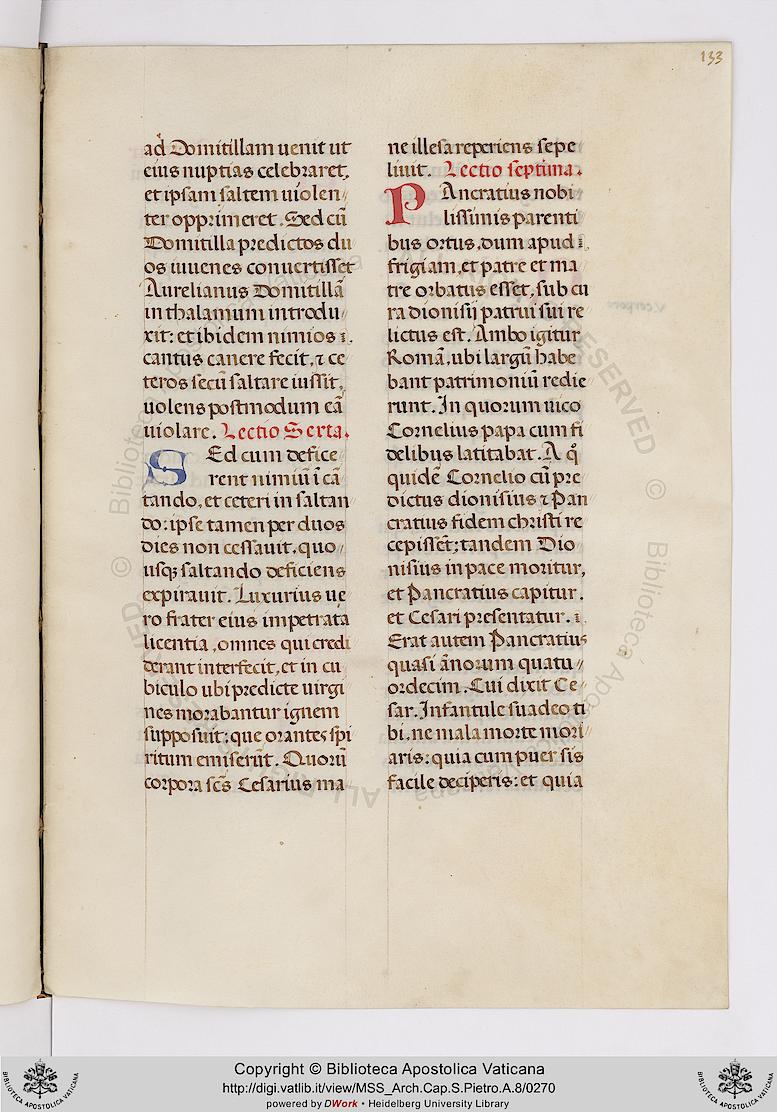 133
ad Domitillam uenit ut
eius nuptias celebraret,
et ipsam saltem uiolen
ter opprimeret. Sed cū
Domitilla predictos du
os iuuenes conuertisset
Aurelianus Domitillā
in thalamum introdu
xit: et ibidem nimios ı.
cantus canere fecit, ⁊ ce
teros secū saltare iussit,
uolens postmodum eā
uiolare. Lectio Sexta.
SEd cum defice
rent nimiū ī cā
tando, et ceteri in saltan
do: ipse tamen per duos
dies non cessauit, quo
usq; saltando deficiens
expirauit. Luxurius ue
ro frater eius impetrata
licentia, omnes qui credi
derant interfecit, et in cu
biculo ubi predicte uirgi
nes morabantur ignem
supposuit: que orantes spi
ritum emiserūt. Quorū
corpora scs̄ Cesarius ma
ne illesa reperiens sepe
liuit. Lectio septima.
PAncratius nobi
lissimis parenti
bus ortus, dum apud ı.
frigiam, et patre et ma
tre orbatus esset, sub cu
ra dionisij patrui sui re
lictus est. Ambo igitur
Romā, ubi largū habe
bant patrimoniū redie
runt. In quorum uico
Cornelius papa cum fi
delibus latitabat. A q̄
quidē Cornelio cū pre
dictus dionisius ⁊ Pan
cratius fidem christi re
cepisset̄; tandem Dio
nisius in pace moritur,
et Pancratius capitur.
et Cesari presentatur. ı.
Erat autem Pancratius
quasi ānorum quatu
ordecim. Cui dixit Ce
sar. Infantule suadeo ti
bi, ne mala morte mori
aris: quia cum puer sis
facile deciperis: et quia
Copyright © Biblioteca Apostolica Vaticana
http://digi.vatlib.it/view/MSS_Arch.Cap.S.Pietro.A.8/0270
powered by DWork • Heidelberg University Library
BIBLIOTECA APOSTOLICA VATICANA
BIBLIOTECA APOSTOLICA VATICANA